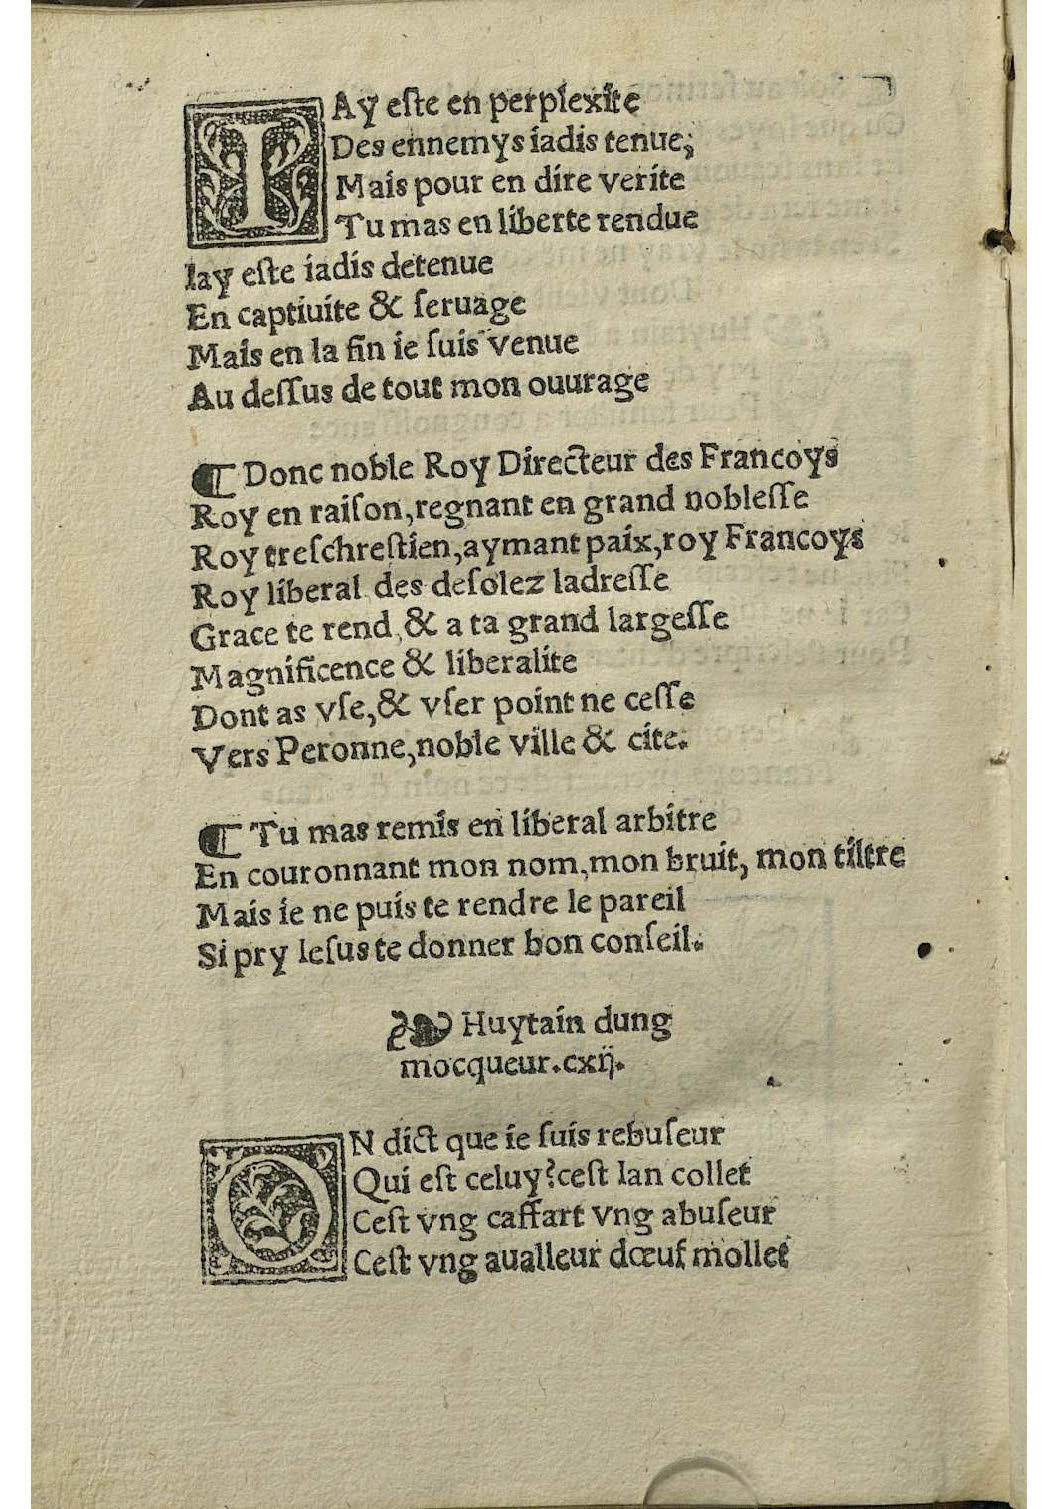 IAy este en perplexite
Des ennemys iadis tenue;
Mais pour en dire verite
Tu mas en liberte rendue
Iay eſte iadis detenue
En captiuite & ſeruage
Mais en la fin ie ſuis venue
Au deſſus de tout mon ouurage
¶ Donc noble Roy Directeur des Francoys
Roy en raiſon, regnant en grand nobleſſe
Roy treſchreſtien, aymant paix, roy Francoys
Roy liberal des deſolez ladreſſe
Grace te rend, & a ta grand largeſſe
Magnificence & liberalite
Dont as vſe, & vſer point ne ceſſe
Vers Peronne, noble ville & cite.
¶ Tu mas remis en liberal arbitre
En couronnant mon nom, mon bruit, mon tiltre
Mais ie ne puis te rendre le pareil
Si pry Ieſus te donner bon conſeil.
❧ Huytain dung
mocqueur. cxij.
ON dict que ie ſuis rebuſeur
Qui eſt celuy? ceſt Ian collet
Ceſt vng caffart vng abuſeur
Ceſt vng aualleur dœuf mollet